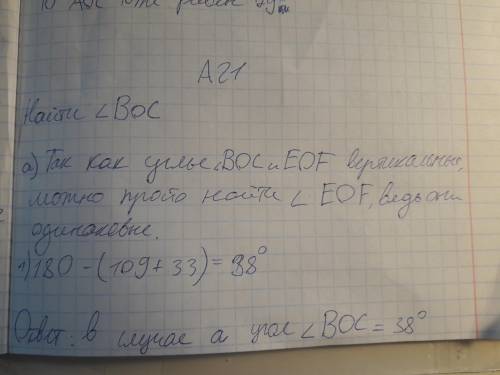 то АОС тоже равен
А21
Найти ∠BOC
а) Так как углы ∠BOC и EOF вертикальные,
можно просто найти ∠ EOF, ведь они
одинаковые.
1) 180 - (109 + 33) = 38°
Ответ: в случае а угол ∠BOC = 38°